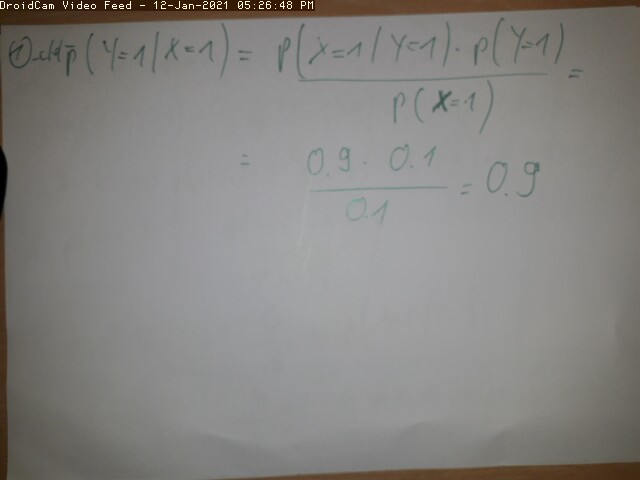 DroidCam Video Feed - 12-Jan-2021 05:26:48 PM
p(Y=1/X=1) = p(X=1/Y=1) · p(Y=1) =
p(X=1)
= 0.9 · 0.1 = 0.9
0.1